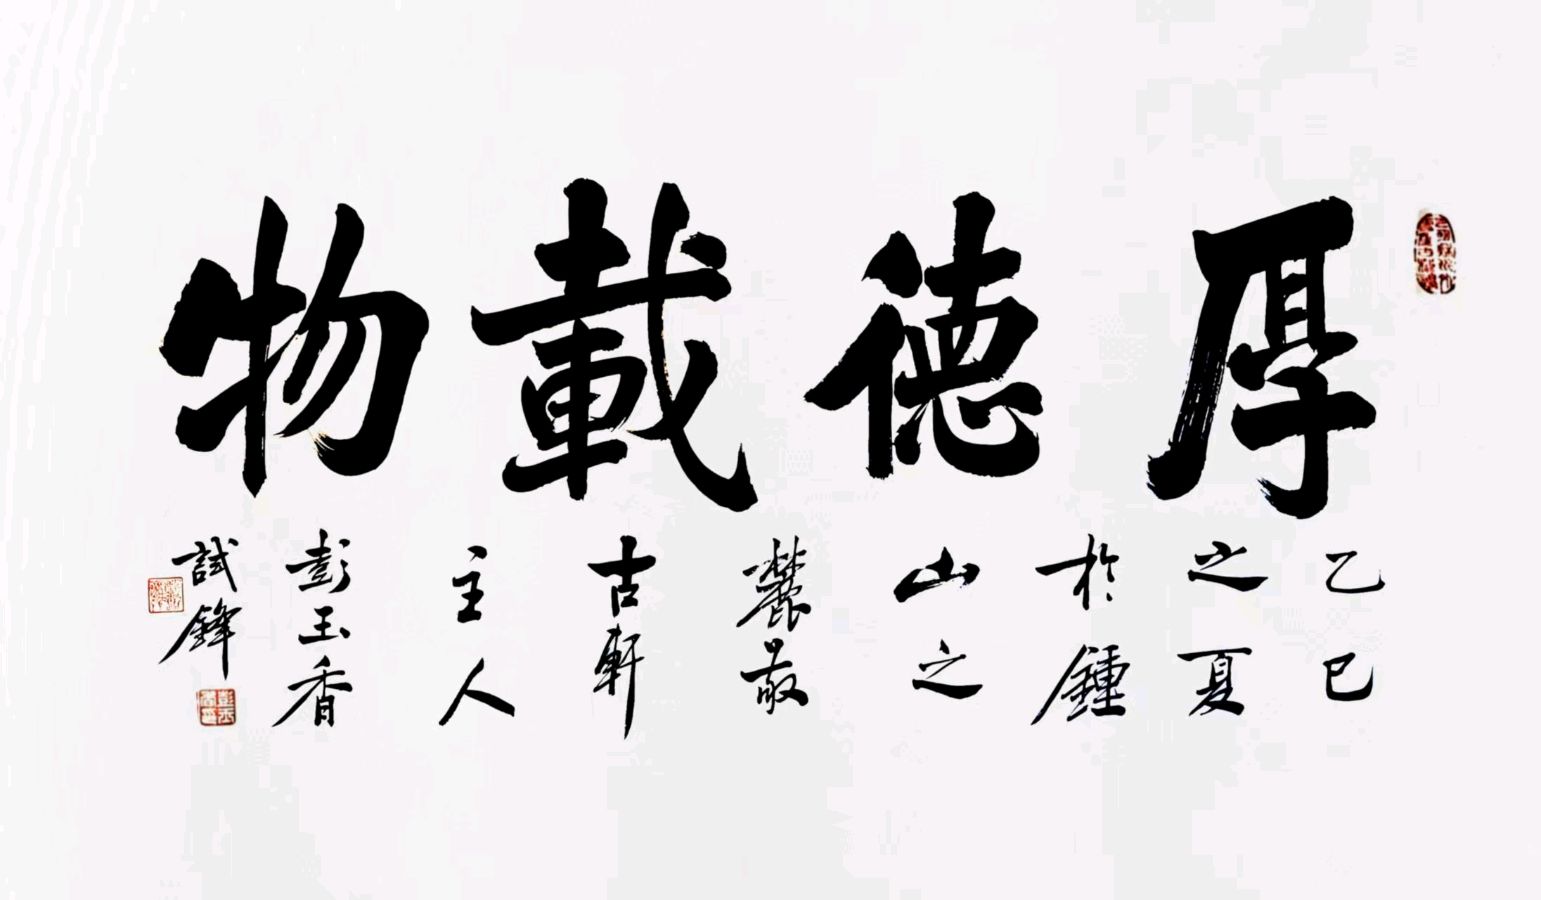 厚德載物
乙巳
之夏
於鍾
山之
麓最
古軒
主人
彭玉香
試鋒